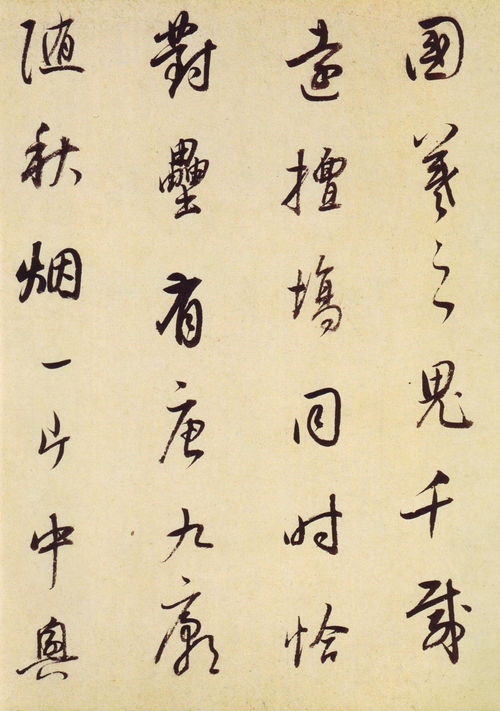 國羲之鬼千載
遠擅塲同时恰
對壘有唐九廟
随秋烟一片中興